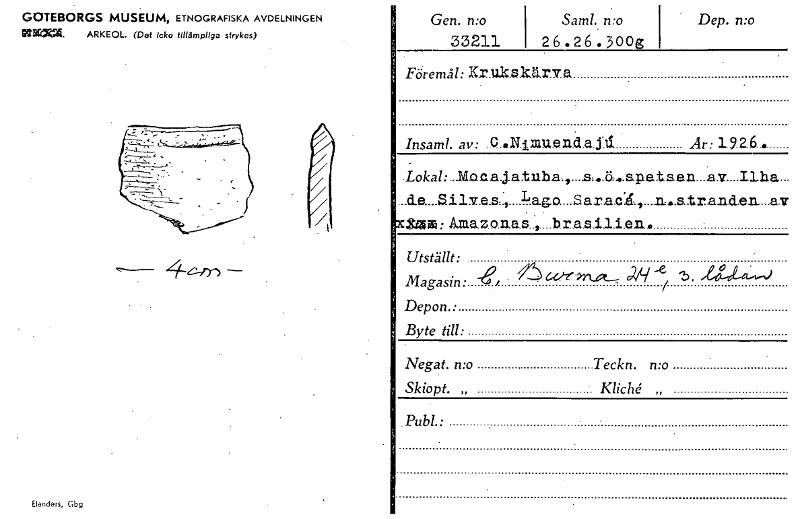 GÖTEBORGS MUSEUM, ETNOGRAFISKA AVDELNINGEN
ARKEOL. (Det icke tillämpliga strykes)
4cm
Elanders, Gbg
Gen. n:o Saml. n:o Dep. n:o
33211 26.26.300g
Föremål: Krukskärva
Insaml. av: C.Nimuendajú År: 1926.
Lokal: Mocajatuba, s.ö.spetsen av Ilha
de Silves, Lago Saracá, n.stranden av
Amazonas, brasilien.
Utställt:
Magasin: C, Burma 24e, 3. lådan
Depon.:
Byte till:
Negat. n:o Teckn. n:o
Skiopt. „ Kliché „
Publ.: